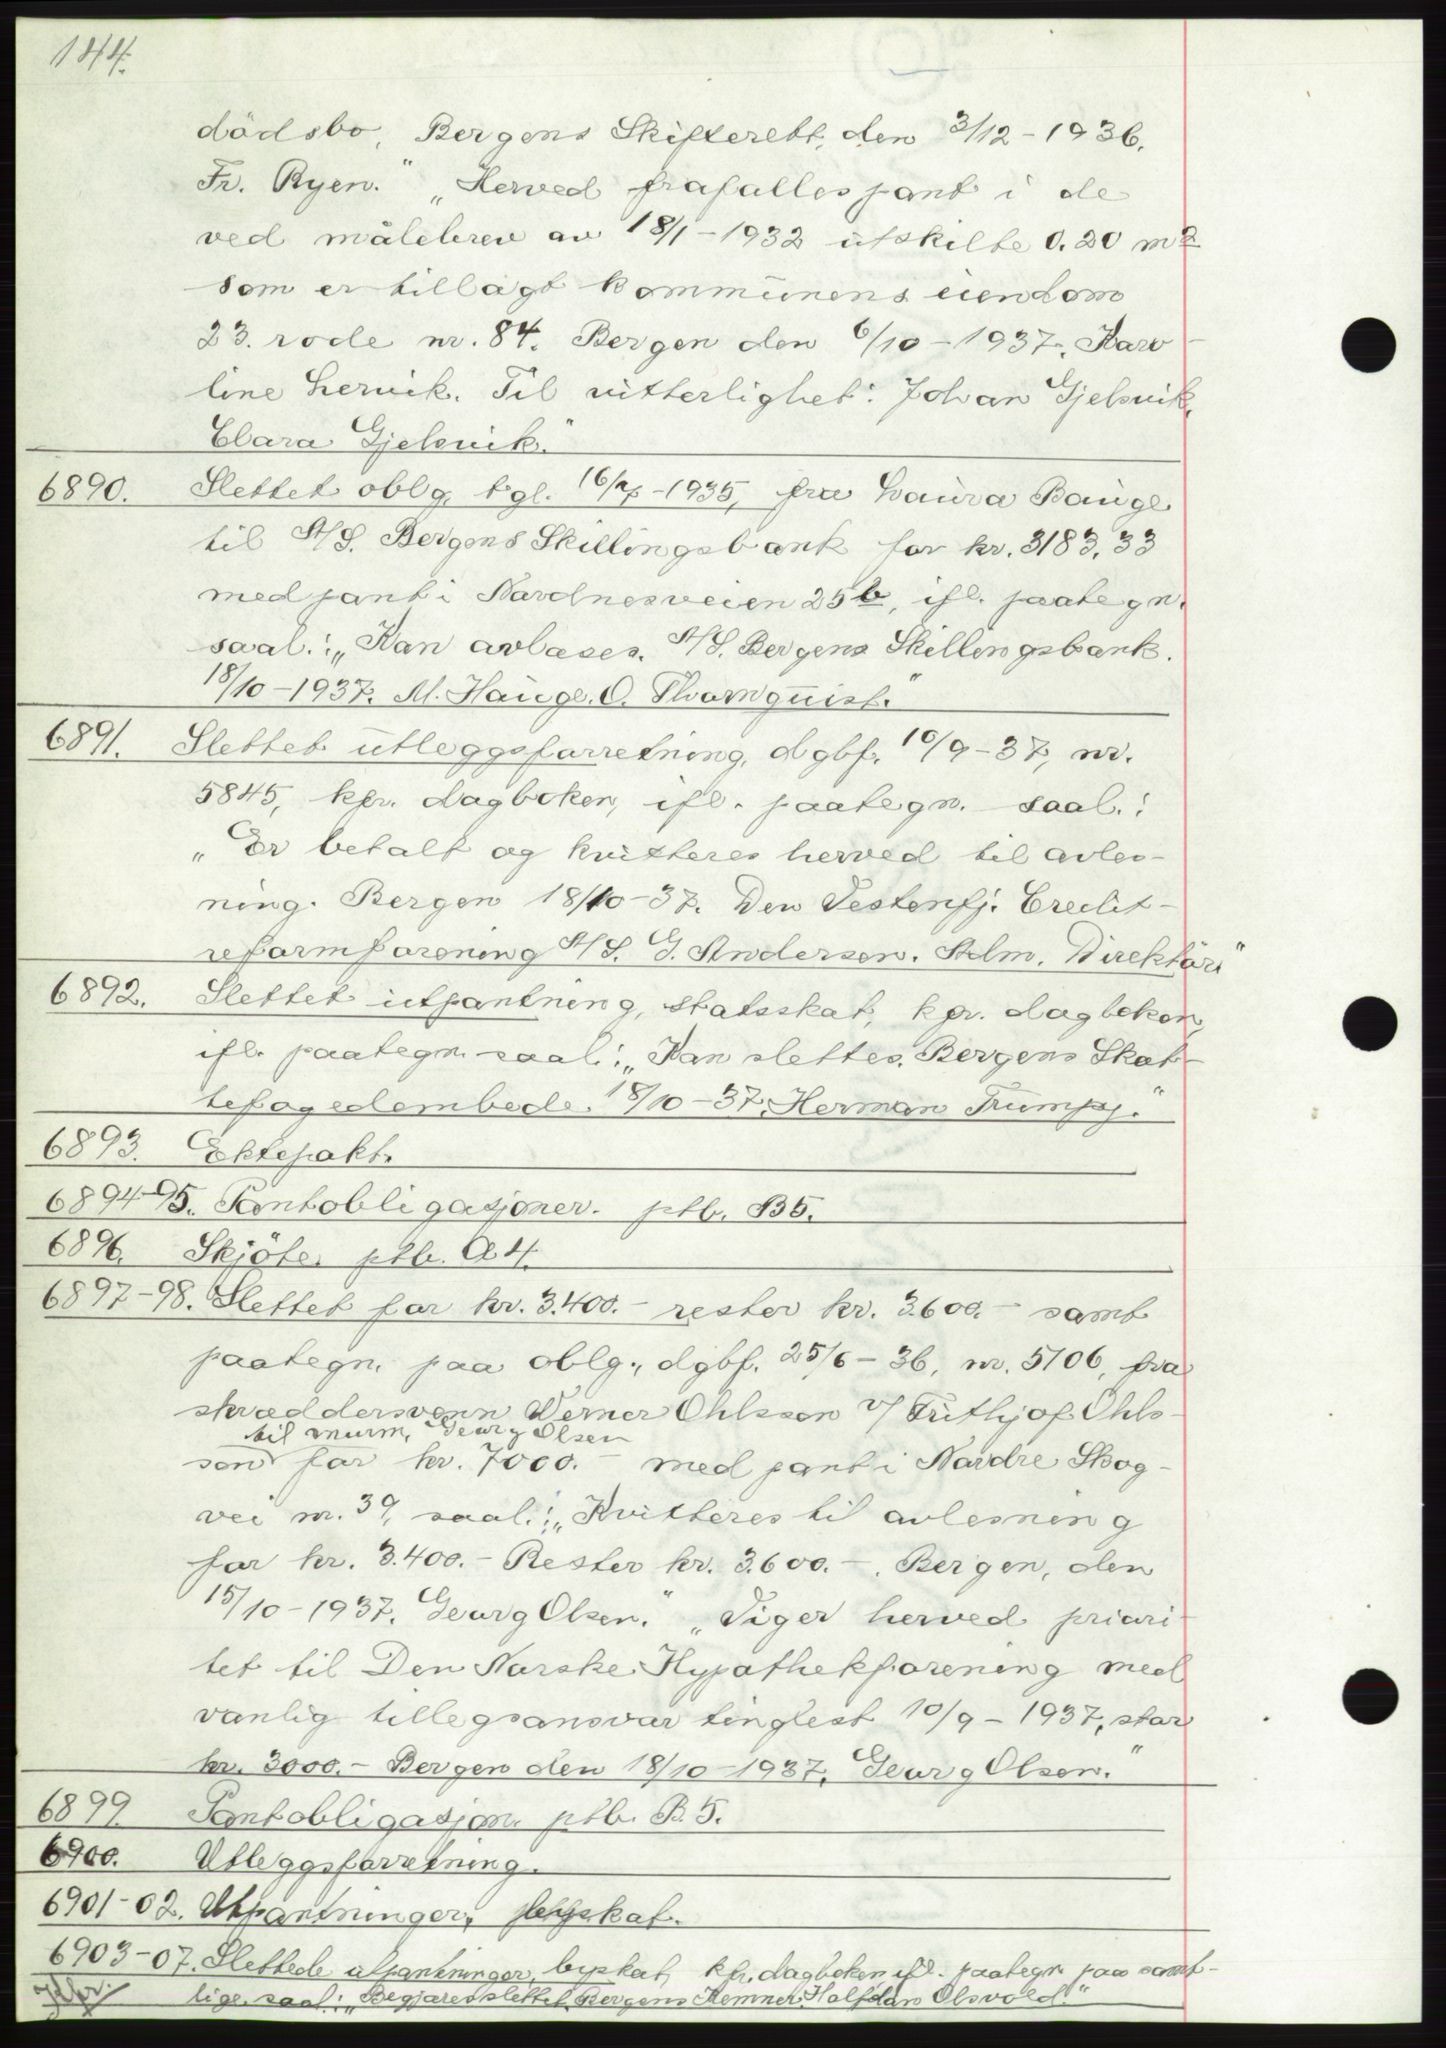 144.
dödsbo, Bergens Skifterett, den 3/12-1936.
Fr. Ryen." „Herved frafalles pant i de
ved målebrev av 18/1-1932 utskilte 0.20 m2
som er tillagt kommunens eiendom
23. rode nr. 84. Bergen den 6/10-1937. Karo-
line Lervik. Til vitterlighet: Johan Gjelsvik,
Clara Gjelsvik."
6890. Slettet oblg. tgl. 16/ -1935, fra Laura Bauge
til A/S. Bergens Skillingsbank for kr. 3183,33
med pant i Nordnesveien 25 b, ifl. paategn.
saal.: „Kan avlæses. A/S. Bergens Skillingsbank.
18/10-1937. M. Hauge. O. Thornquist."
6891. Slettet utleggsforretning, dgbf. 10/9-37, nr.
5845, kfr. dagboken, ifl. paategn. saal.:
„Er betalt og kvitteres herved til avles-
ning. Bergen 18/10-37. Den Vestenfj. Credit-
reformforening A/S. G. Andersen. Adm. Direktör"
6892. Slettet utpantning, statsskat, kfr. dagboken,
ifl. paategn. saal.: „Kan slettes. Bergens Skat-
tefogedembede. 18/10-37. Herman Trumpy."
6893. Ektepakt.
6894-95. Pantobligasjoner. ptb. B5.
6896. Skjöte. ptb. A4.
6897-98. Slettet for kr. 3.400.- rester kr. 3.600.- samt
paategn. paa oblg., dgbf. 25/6-36, nr. 5106, fra
skræddersvenn Werner Ohlsson v/ Frithjof Ohls-
til murm. Georg Olsen
son for kr. 7000.- med pant i Nordre Skog-
vei nr. 39, saal.: „Kvitteres til avlesning
for kr. 3.400.- Rester kr. 3.600.-. Bergen, den
15/10-1937. Georg Olsen." „Viger herved priori-
tet til Den Norske Hypothekforening med
vanlig tillegsansvar tinglest 10/9-1937, stor
kr. 3000.- Bergen den 18/10-1937. Georg Olsen."
6899. Pantobligasjon. ptb. B.5.
6900. Utleggsforretning.
6901-02. Utpantninger, byskat.
6903-07. Slettede utpantninger, byskat, kfr. dagboken, ifl. paategn. paa samt-
lige, saal.: „Begjæres slettet. Bergens Kemner. Halfdan Olsvold."